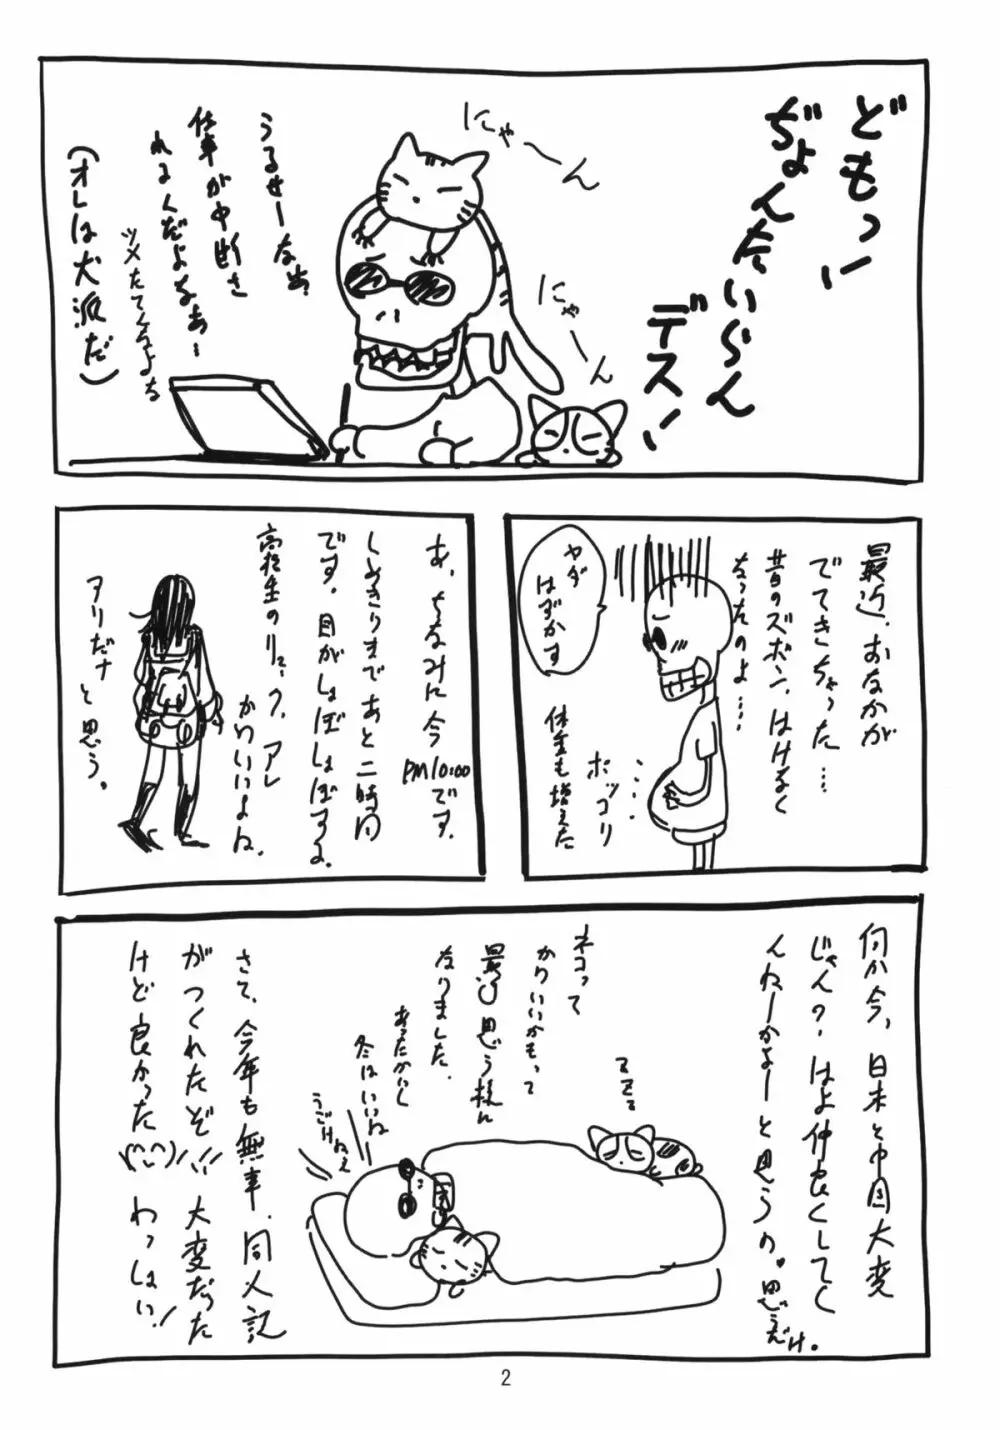 どもっ!
ぢょんたいらん
デス!
にゃーん
にゃーん
うるせーなぁ。
仕事が中断さ
れるんだよなぁー
ツメたてんなよな
(オレは犬派だ)
最近、おなかが
でてきちゃった…
昔のズボン、はけなく
なったのよ……
ヤダ
はずかす
ポッコリ
体重も増えた
あ、ちなみに今
PM10:00です。
しめきりまであと二時間
です。目がしょぼしょぼするよ。
高校生のリュック、アレ
かわいいよね。
アリだナ
と思う。
何か今、日本と中国大変
じゃん?はよ仲良くしてく
んねーかよーと思うの。思うだけ。
ネコって
かわいいかもって
最近思う様に
なりました。
あったかいし
冬はいいね
うごけねぇ
ててて
さて、今年も無事、同人記
がつくれたぞ!!大変だった
けど良かった(^-^)/
わっしょい!
2